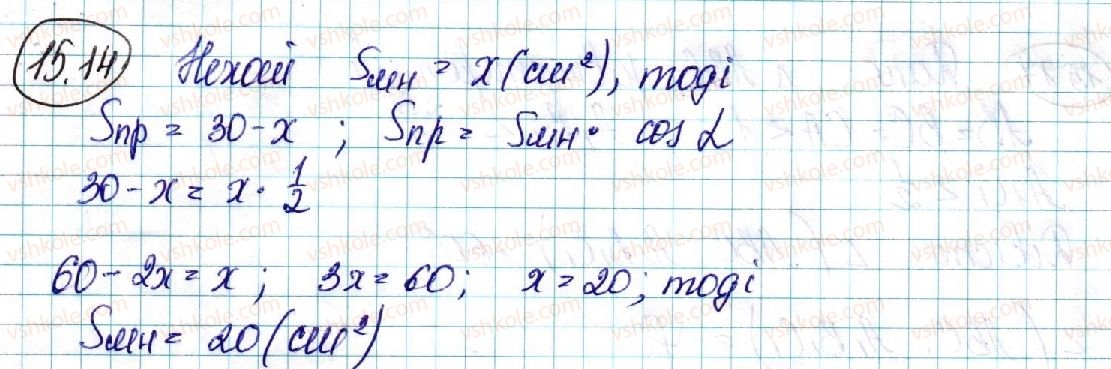 15.14 Нехай Sмн = x (см²), тоді
Sпр = 30 - x ; Sпр = Sмн · cos α
30 - x = x · 1/2
60 - 2x = x ; 3x = 60 ; x = 20 ; тоді
Sмн = 20 (см²)